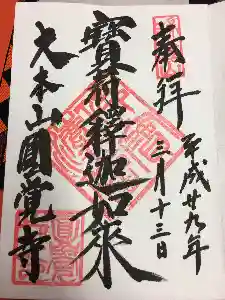 奉拝
平成廿九年
三月十三日
寳荷釋迦如来
大本山圓覚寺